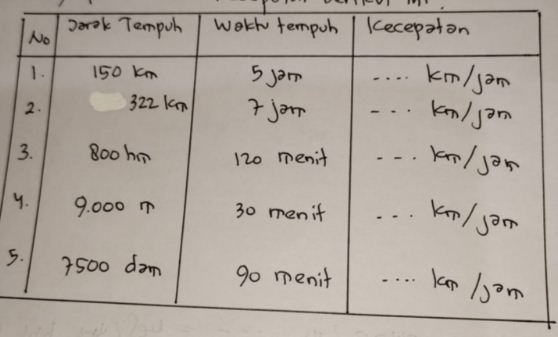 No Jarak Tempuh Waktu tempuh Kecepatan
1. 150 km 5 jam .... km/jam
2. 322 km 7 jam --- km/jam
3. 800 hm 120 menit --- km/jam
4. 9.000 m 30 menit --- km/jam
5. 7500 dam 90 menit .... km/jam